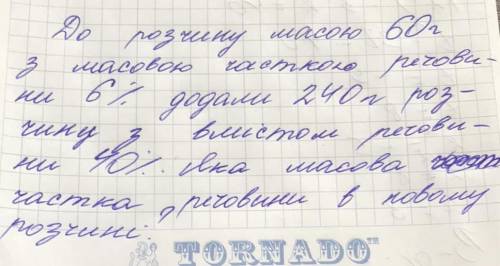 До розчину масою 60г
з масовою часткою речови-
ни 6% додали 240г роз-
чину з вмістом речови-
ни 40%. Яка масова
частка речовини в новому
розчині?
TORNADO™